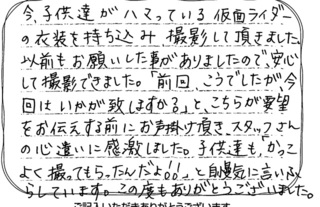 今、子供達がハマっている仮面ライダー
の衣装を持ち込み撮影して頂きました。
以前もお願いした事がありましたので、安心
して撮影できました。「前回、こうでしたが、今
回はいかが致しますか?」と、こちらが要望
をお伝えする前にお声掛け頂き、スタッフさん
の心遣いに感激しました。子供達も、かっこ
よく撮ってもらったんだよ!!と自慢気に言いふ
らしています。この度もありがとうございました。
ご記入いただきありがとうございます